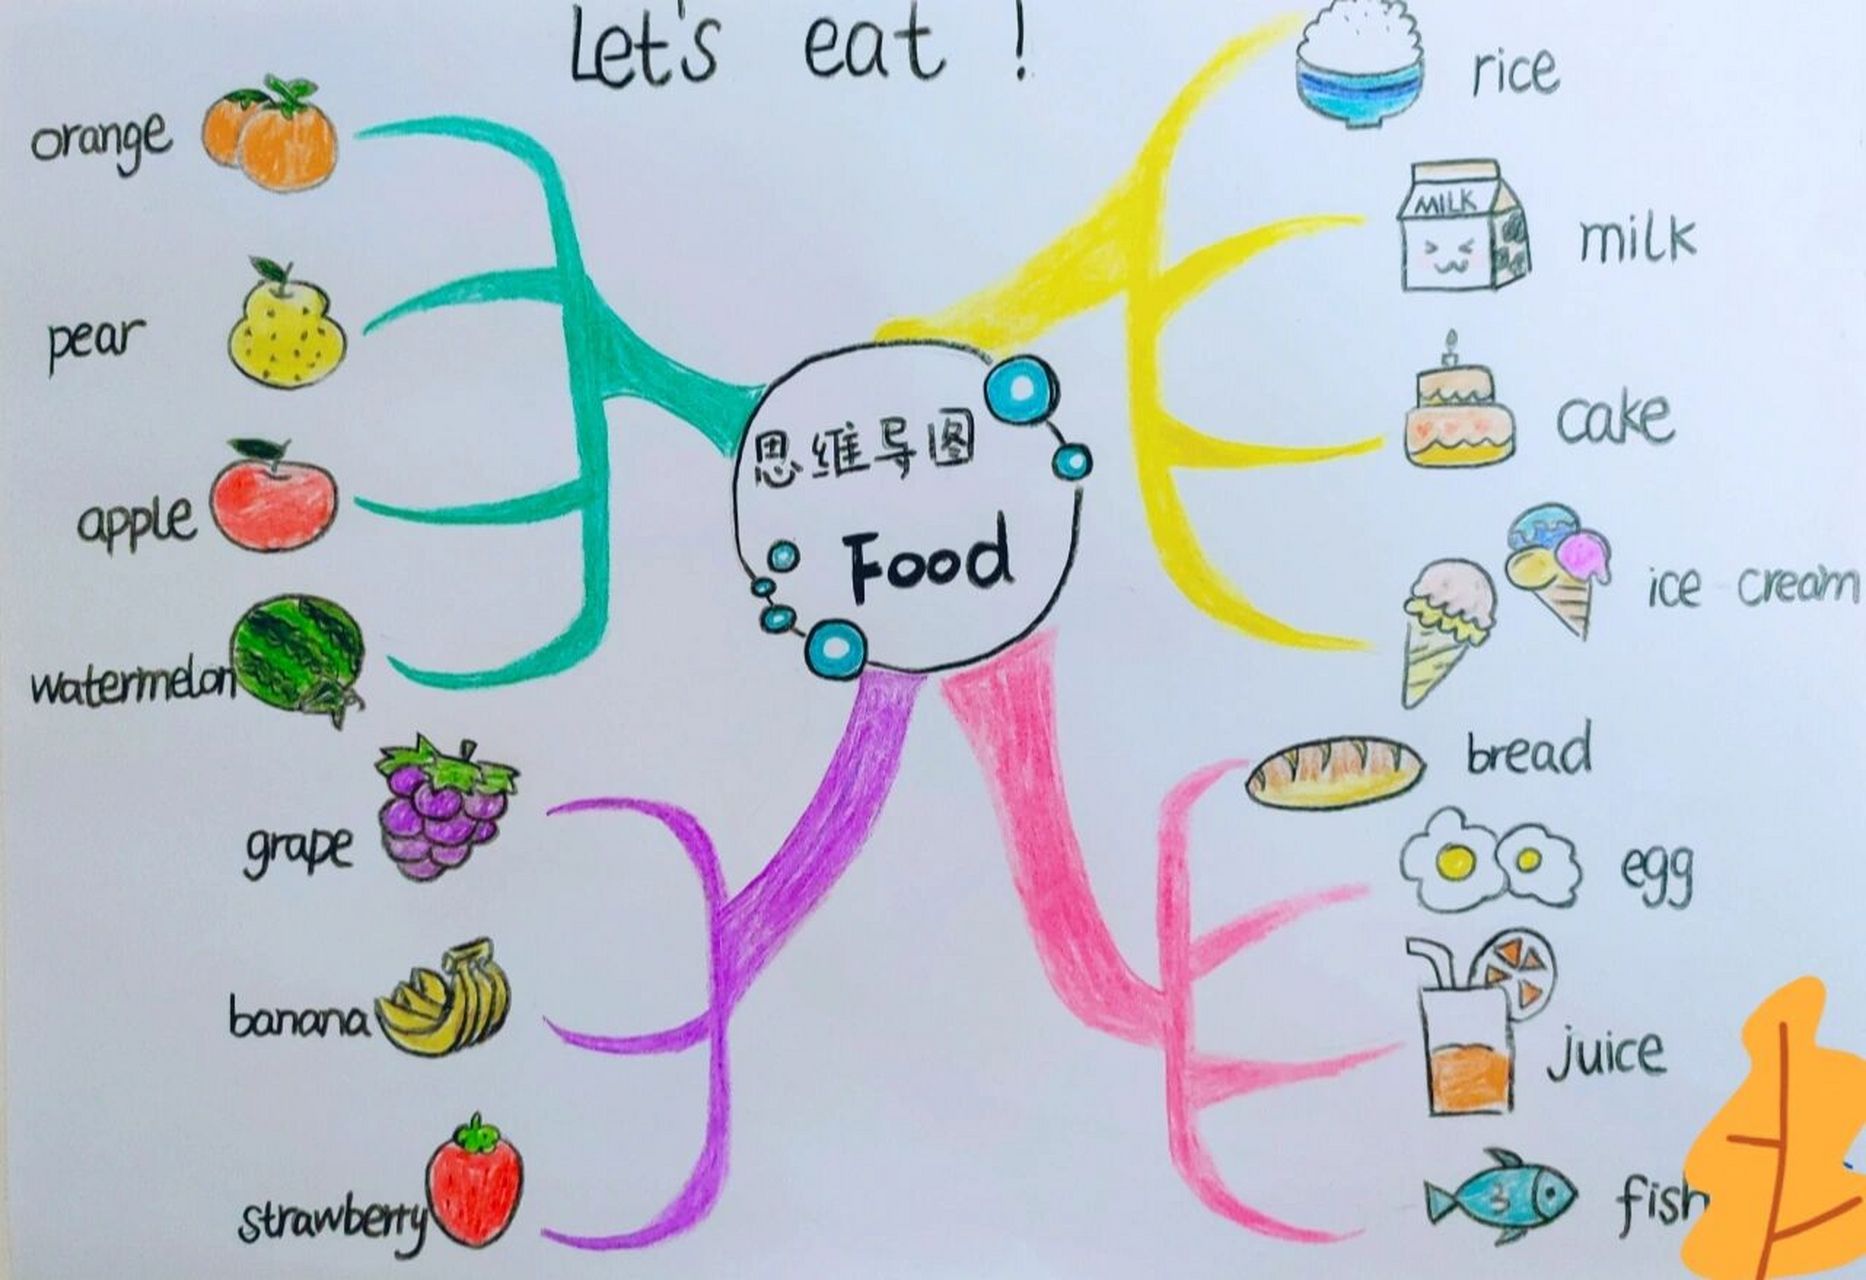 Let's eat !
orange
pear
apple
watermelon
grape
banana
strawberry
思维导图
Food
rice
MILK
milk
cake
ice cream
bread
egg
juice
fish